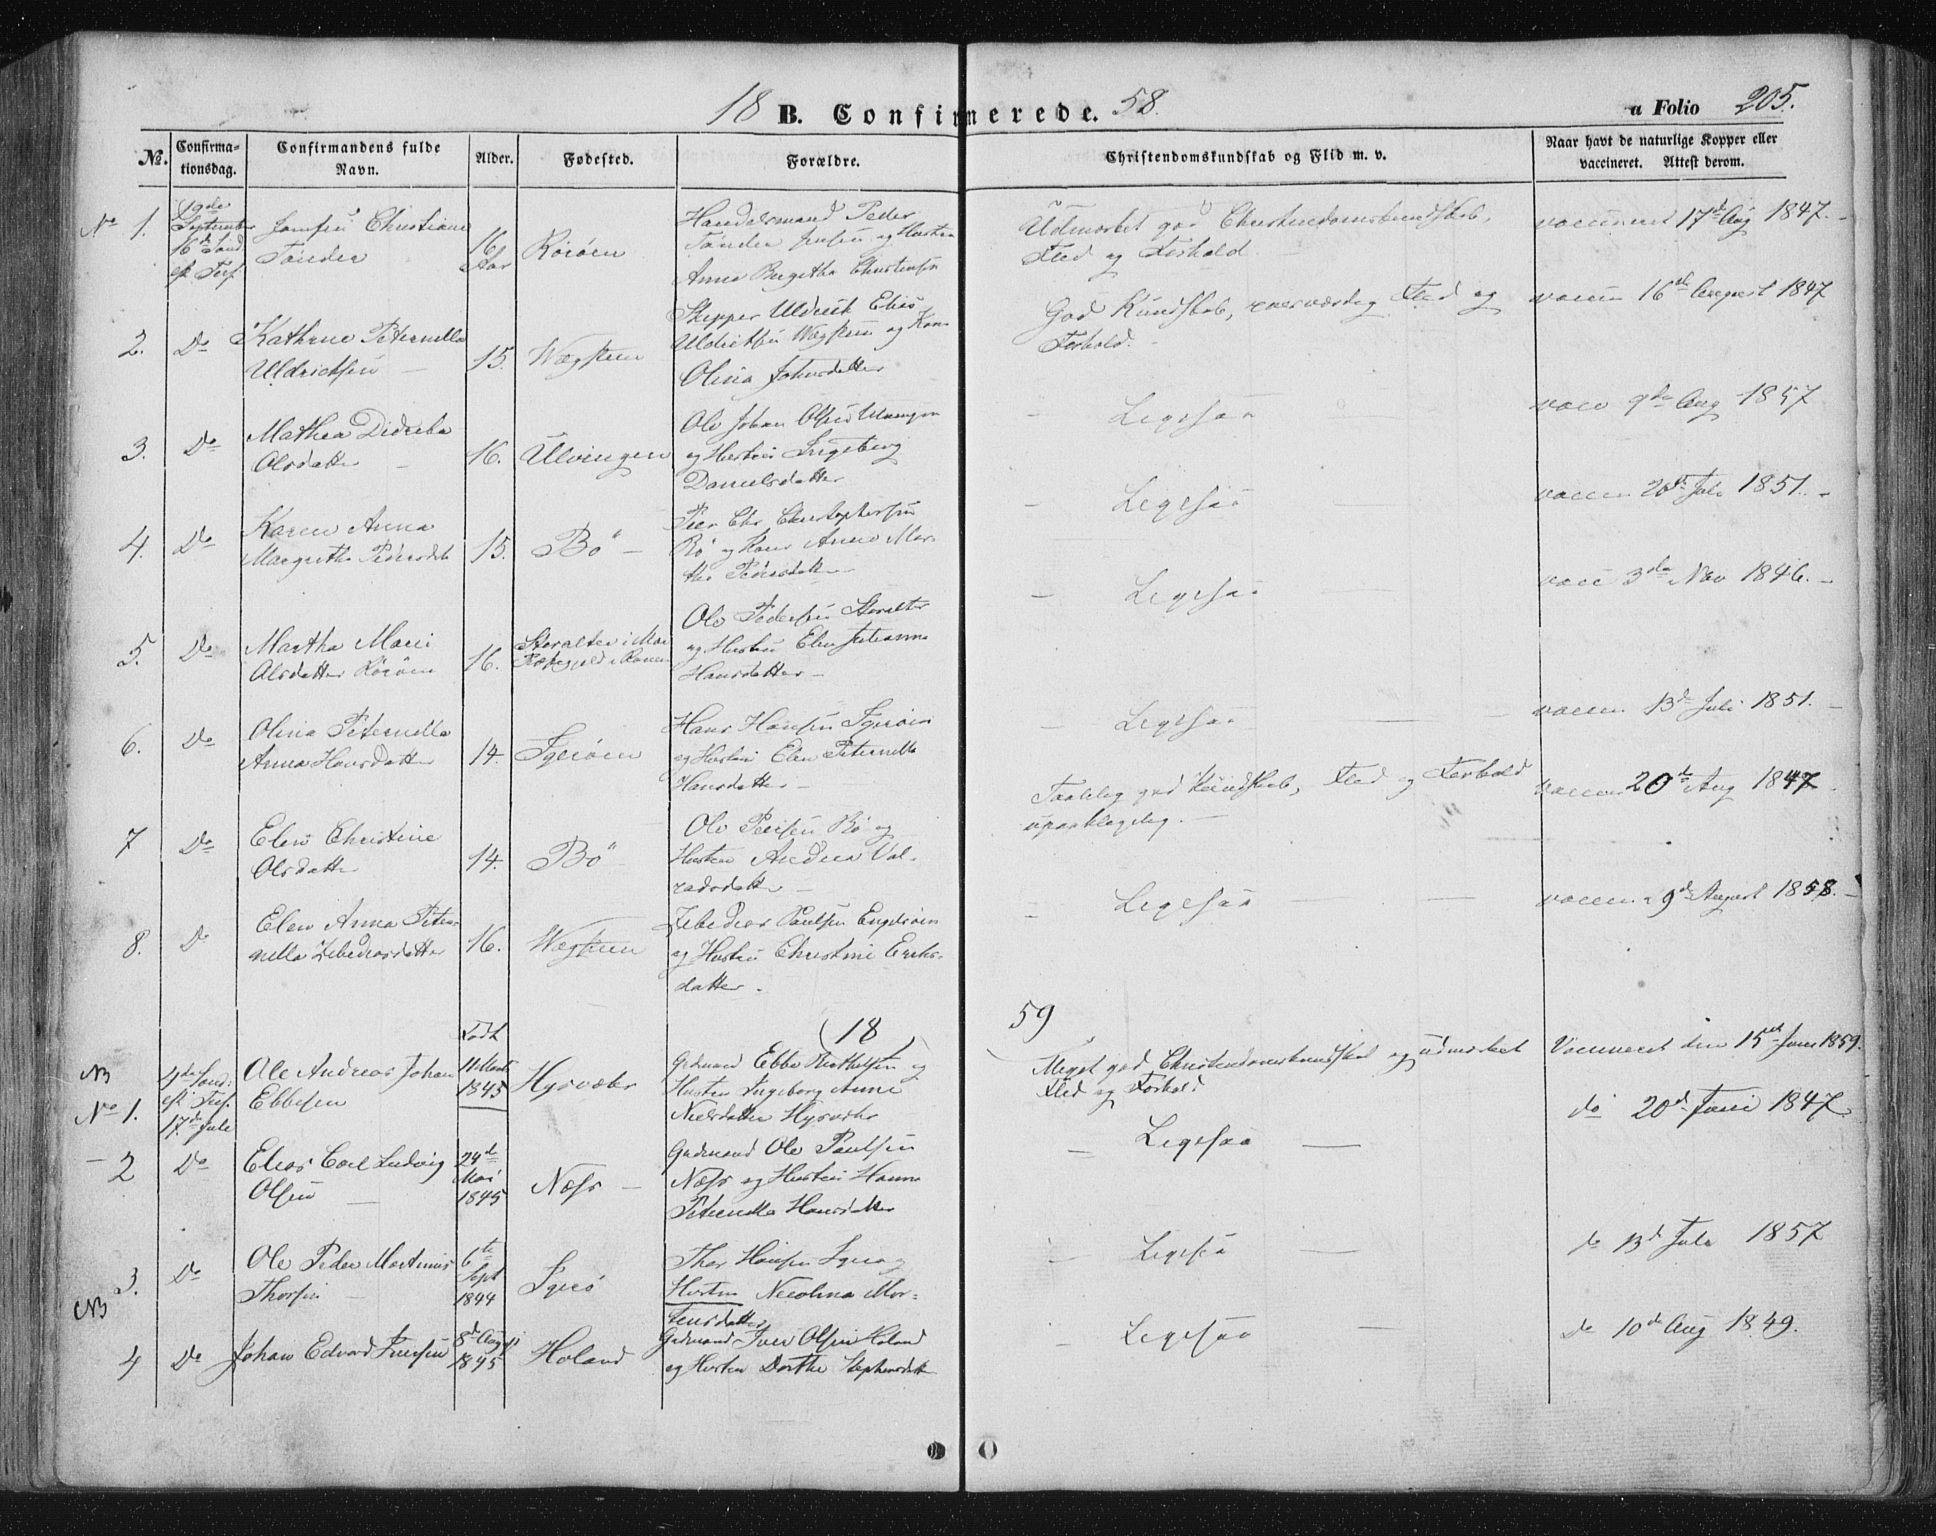 18 B. Confirmerede. 58.
a Folio 205.
No.
Confirma-
tionsdag.
Confirmandens fulde
Navn.
Alder.
Fødested.
Forældre.
Christendomskundskab og Flid m. v.
Naar havt de naturlige Kopper eller
vaccineret. Attest derom.
No 1.
19de
September
16de Sønd
ef. Tref.
Christiane
Tønder
16
Aar
Rørøen
Handelsmand Peder
Tønder og Hustru
Anna Birgitha Christensen
Udmærket god Christendomskundskab,
Flid og Forhold.
vaccineret 17de Aug 1847.
2.
Do
Kathrine Peternella
Uldricksen
15.
Wægsteen
Skipper Uldrick Elias
Uldricksen Wægsteen og Kone
Olina Johnsdatter
God Kundskab, roesværdig Flid og
Forhold.
vaccin 16de August 1847
3.
Do
Mathea Didrika
Olsdatter
16.
Ulvingen
Ole Johan Olsen Ulvingen
og Hustru Ingeborg
Danielsdatter
Ligesaa
vacc 9de Aug 1857
4.
Do
Karen Anna
Margretha Pedersdt
15.
Bö
Peder Chr Christophersen
Bö og Kone Anne Mar-
tha Pedersdatter
Ligesaa
vaccin 20de Juli 1851.
5.
Do
Martha Marie
Olsdatter Röröen
16.
Storalteren i Moe
Præstegjeld i Ranen
Ole Pedersen Storalter
og Hustru Elen Julianna
Hansdatter
Ligesaa
vacc 3de Nov 1846.
6.
Do
Olina Peternella
Anna Hansdatter
14.
Igeröen
Hans Hansen Igeröen
og Hustru Elen Peternella
Hansdatter
Ligesaa
vaccin 13de Juli 1851.
7
Do
Elen Christine
Olsdatter
14.
Bö
Ole Peersen Bö og
Hustru Andrea Vol-
radsdatter
Taalelig god Kundskab, Flid og Forhold
upaaklagelig.
vaccin 20de Aug 1847
8.
Do
Elen Anna Peter-
nella Zebediasdatter
16.
Wægsteen
Zebedias Paulsen
og Hustru Christine Erichs-
datter.
Ligesaa
vaccin 9de August 1858.
18 59
Födt
NB
No 1.
4de Sønd:
ef. Tref.
17de Juli
Ole Andreas Johan
Ebbesen
11 Marts
1845
Hysvær
Gadmand Ebbe og
Hustru Ingeborg Anne
Nielsdatter Hysvær
Meget god Christendomskundskab og udmærket
Flid og Forhold
Vaccineret den 15de Juni 1859.
2
Do
Elias Carl Ludvig
Olsen
24de
Mai
1845
Næss
Gadmand Ole Paulsen
Næss og Hustru Hanna
Peternella Hansdatter
Ligesaa
do 20de Juni 1847
3.
Do
Ole Peder Martinus
Thorsen
6te
Sept
1844
Igerö
Thor Hansen Igerö og
Hustru Nicolina Mor-
tensdatter
Ligesaa
do 13de Juli 1857
NB
4
Do
Johan Edvard Iversen
8de Aug
1845
Holand
Gadmand Iver Olsen Holand
og Hustru Dorthe Stephensdatt
Ligesaa
do 10de Aug 1849.